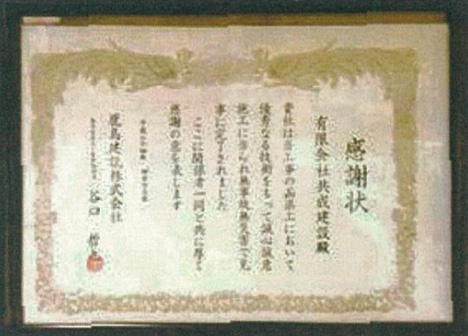 感謝状
有限会社共成建設殿
貴社は当工事の品質工において
優秀なる技術をもって誠心誠意
施工に当られ無事故無災害で見
事に完了されました
ここに関係者一同と共に厚く
感謝の意を表します
鹿島建設株式会社
谷口